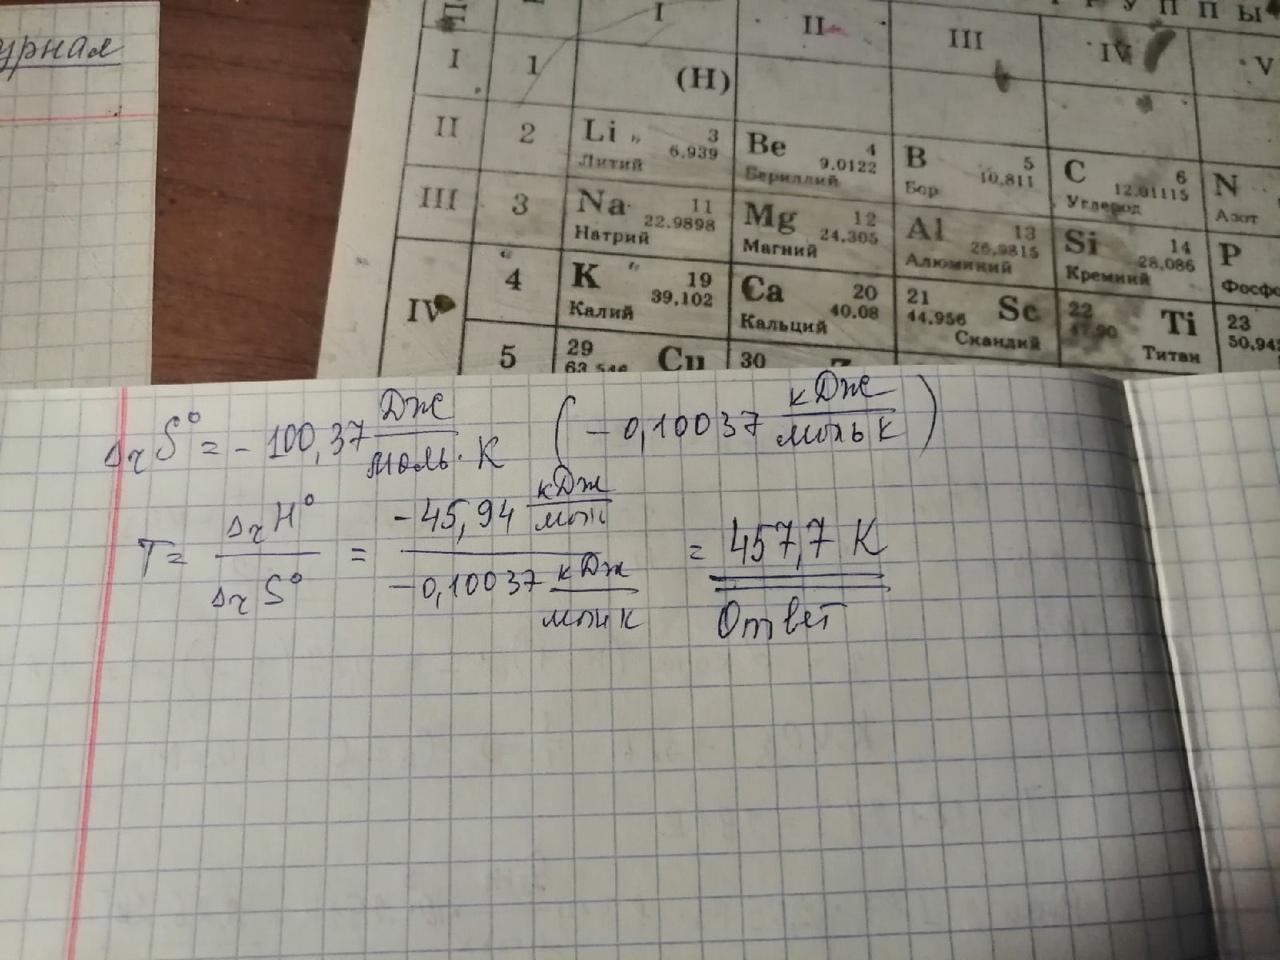 урная
ГРУППЫ
I II III IV V
I 1 (H)
II 2 Li 3 6,939 Литий Be 4 9,0122 Бериллий B 5 10,811 Бор C 6 12,01115 Углерод N Азот
III 3 Na 11 22,9898 Натрий Mg 12 24,305 Магний Al 13 26,9815 Алюминий Si 14 28,086 Кремний P Фосфо
IV 4 K 19 39,102 Калий Ca 20 40,08 Кальций 21 44,956 Sc Скандий 22 47,90 Ti Титан 23 50,942
5 29 63,546 Cu 30
ΔrS° = - 100,37 Дж/моль·К (-0,10037 кДж/моль К)
T = ΔrH°/ΔrS° = -45,94 кДж/мол / -0,10037 кДж/мол К = 457,7 К
Ответ